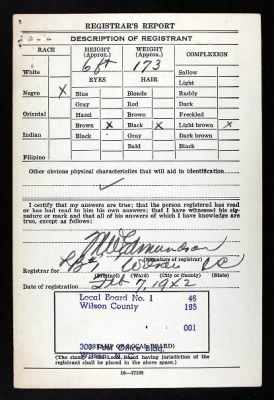 REGISTRAR'S REPORT
DESCRIPTION OF REGISTRANT
RACE HEIGHT (Approx.) WEIGHT (Approx.) COMPLEXION
6 ft 173
White Sallow
EYES HAIR Light
Negro X Blue Blonde Ruddy
Gray Red Dark
Oriental Hazel Brown Freckled
Brown X Black X Light brown X
Indian Black Gray Dark brown
Bald Black
Filipino
Other obvious physical characteristics that will aid in identification
✓
I certify that my answers are true; that the person registered has read
or has had read to him his own answers; that I have witnessed his sig-
nature or mark and that all of his answers of which I have knowledge are
true, except as follows:
Edmundson
(Signature of registrar)
Registrar for
(Precinct) (Ward) (City or County) (State)
Date of registration Feb 7, 1942
Local Board No. 1 46
Wilson County 195
001
Post Office Bldg.
(STAMP OF LOCAL BOARD)
(The stamp of the Local Board having jurisdiction of the
registrant shall be placed in the above space.)